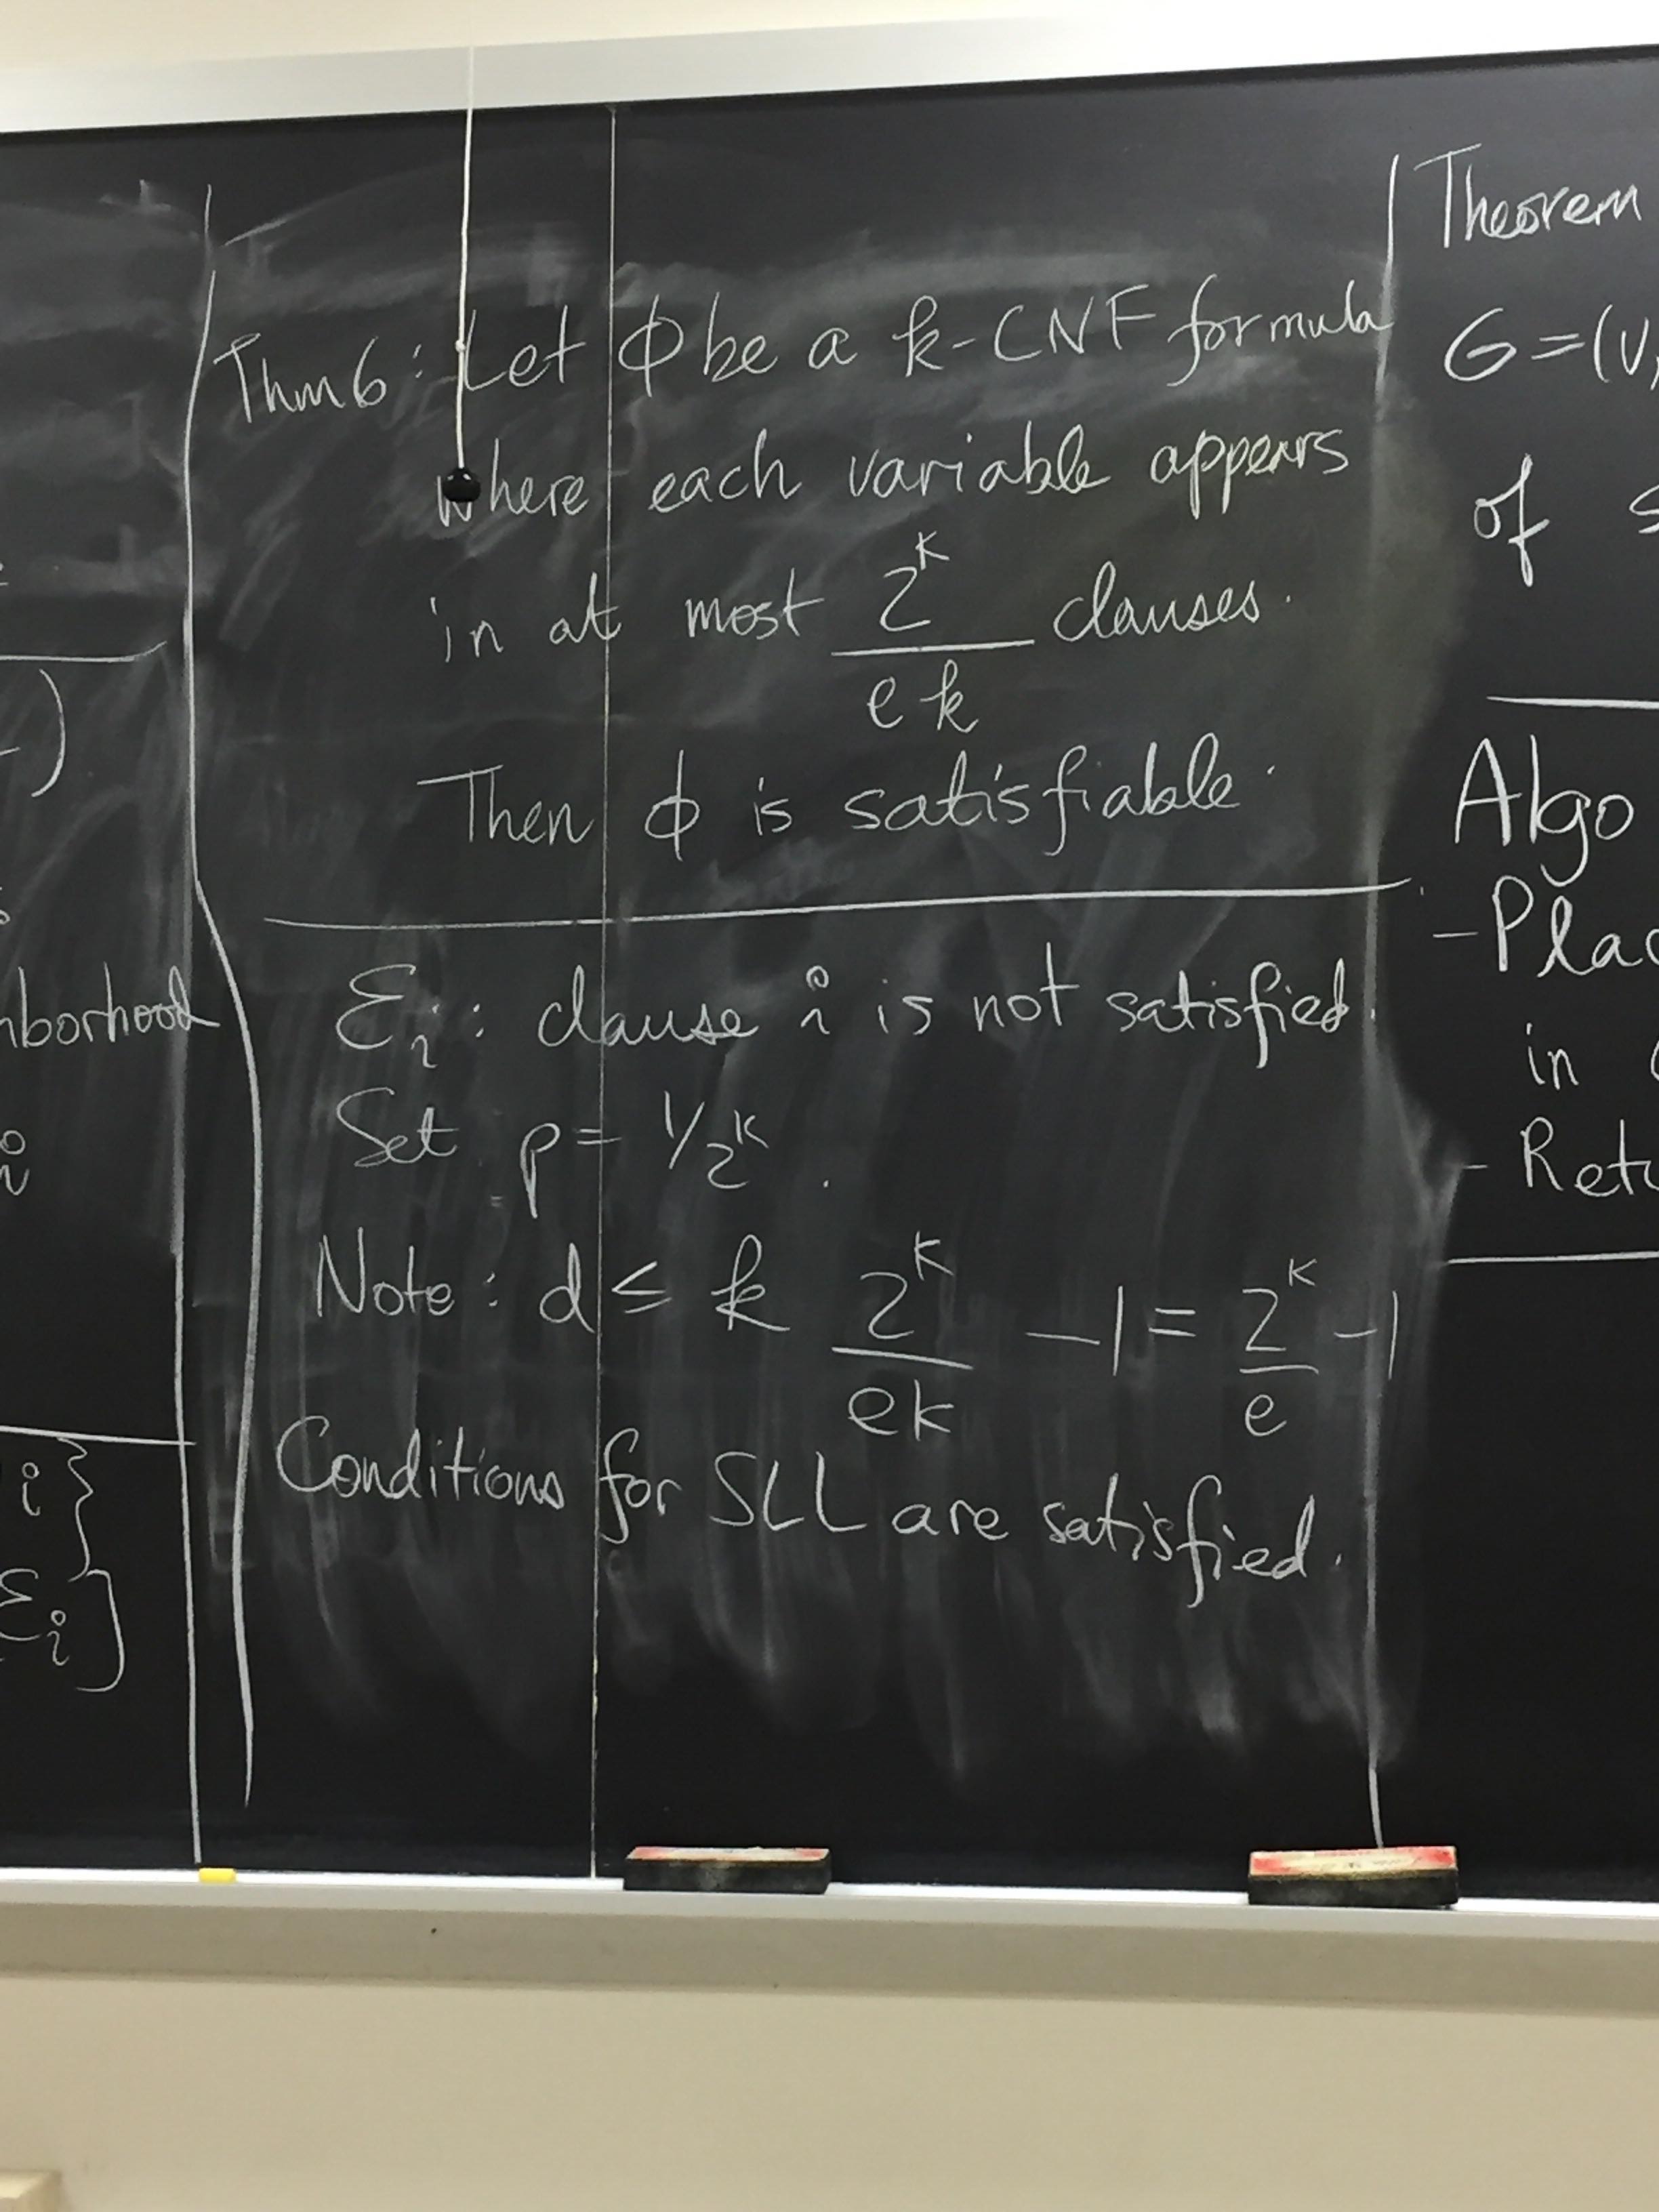 Thm 6: Let ϕ be a k-CNF formula
where each variable appears
in at most 2^k/ek clauses.
Then ϕ is satisfiable.
Ɛi: clause i is not satisfied.
Set p = 1/2^k.
Note: d ≤ k 2^k/ek - 1 = 2^k/e - 1
Conditions for SLL are satisfied.
i}
Ɛi}
Theorem
G=(V,
of
Algo
in